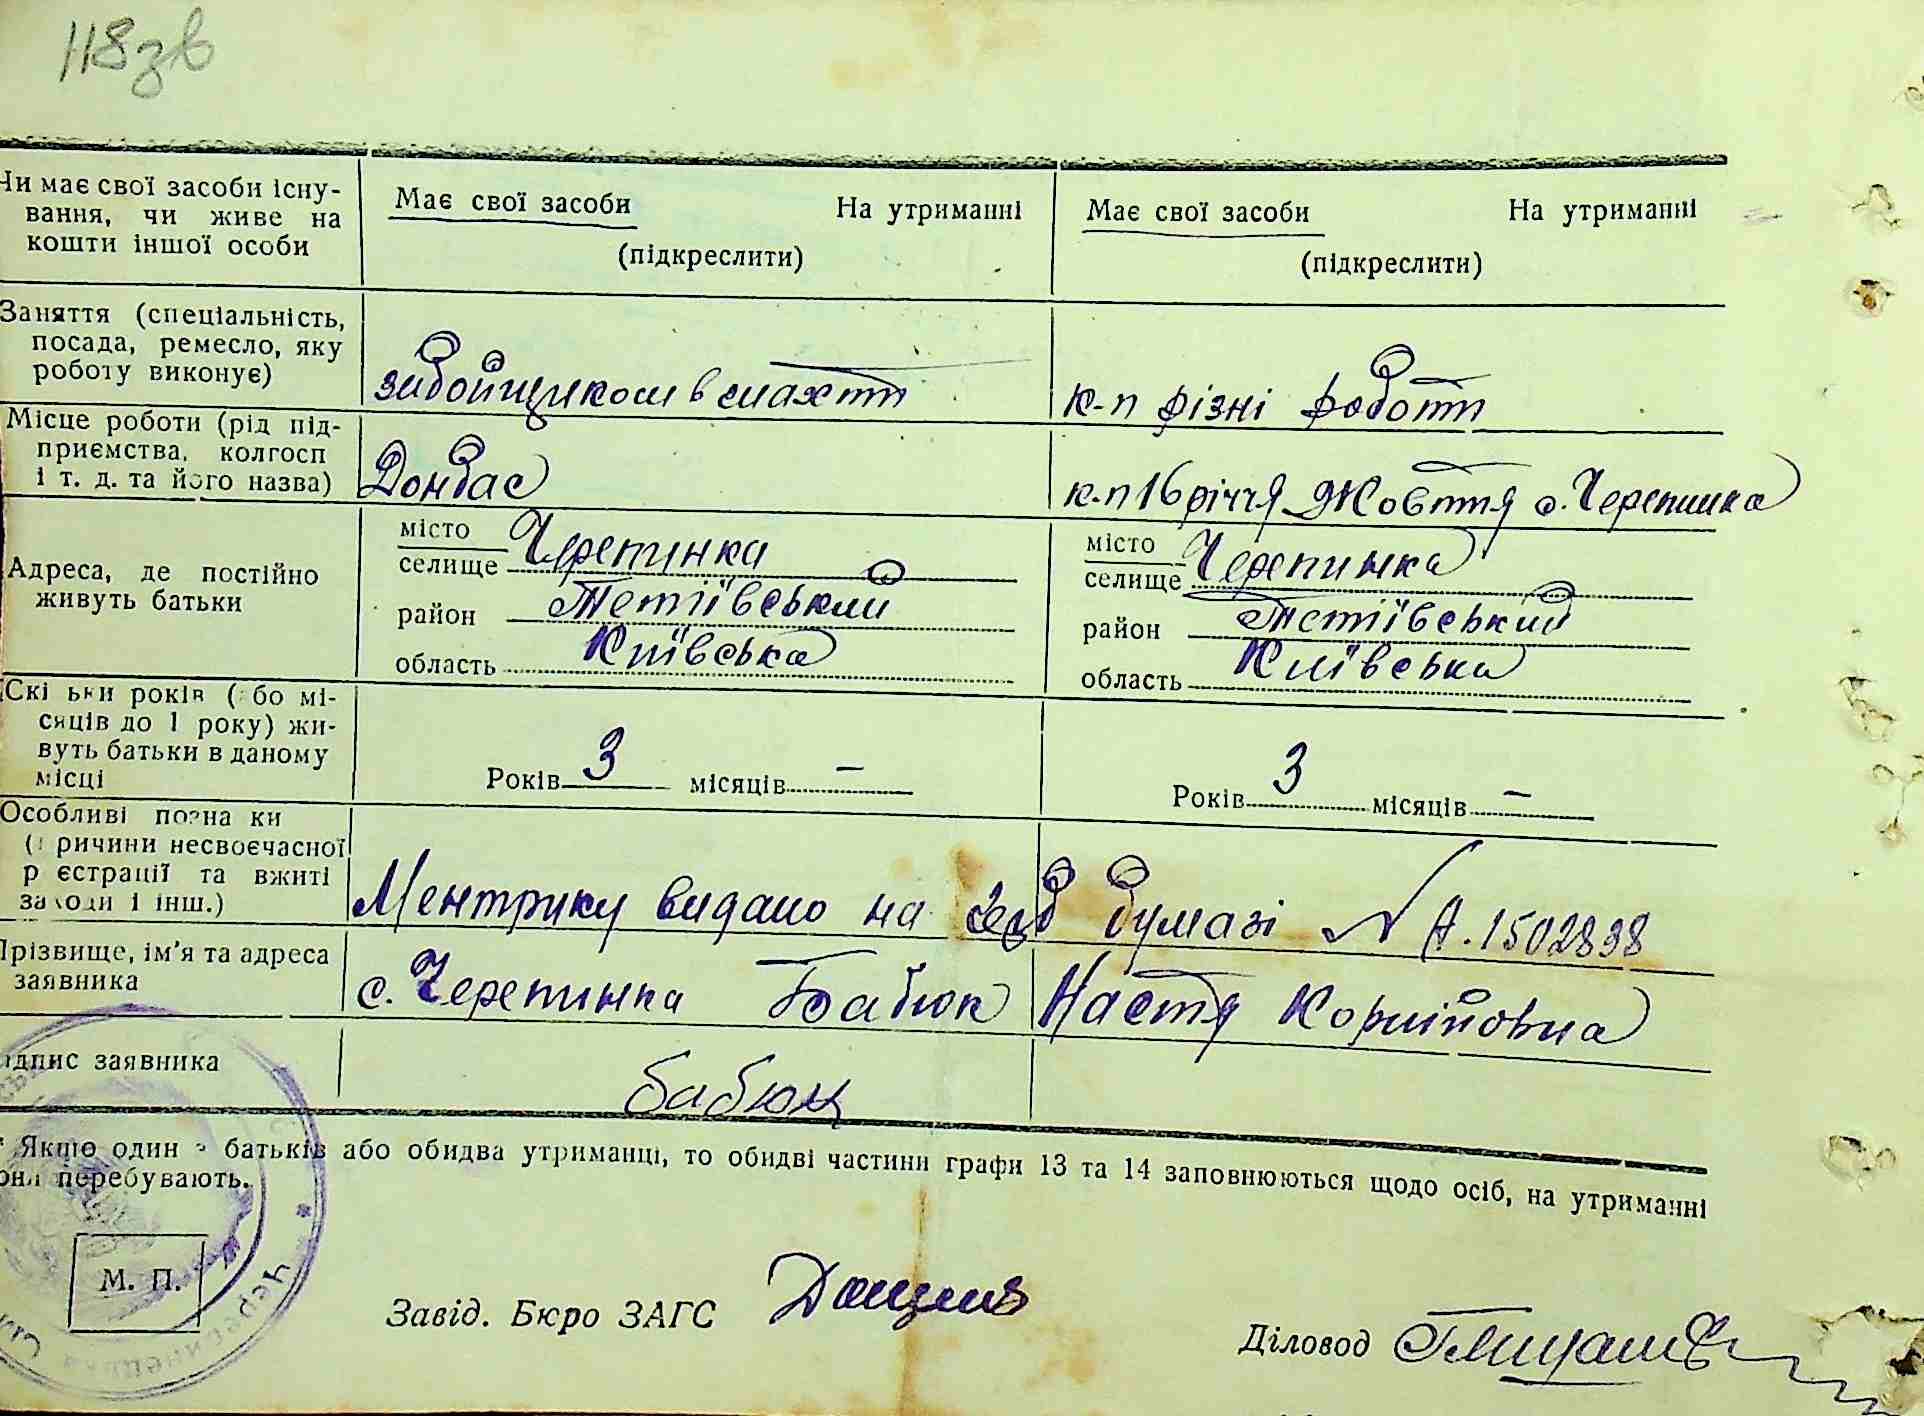 118зв
Чи має свої засоби існу-
вання, чи живе на
кошти іншої особи
Має свої засоби На утриманні
(підкреслити)
Має свої засоби На утриманні
(підкреслити)
Заняття (спеціальність,
посада, ремесло, яку
роботу виконує)
забойщиком в шахті
к-п різні роботи
Місце роботи (рід під-
приємства, колгосп
і т. д. та його назва)
Донбас
к-п 16 річчя Жовтня с. Черепинка
Адреса, де постійно
живуть батьки
місто
селище Черепинка
район Тетіївський
область Київська
місто
селище Черепинка
район Тетіївський
область Київська
Скі ьки років (або мі-
сяців до 1 року) жи-
вуть батьки в даному
місці
Років 3 місяців –
Років 3 місяців –
Особливі позна ки
(причини несвоєчасної
р єстрації та вжиті
заходи і інш.)
Ментрику видано на бумазі № А.1502838
Прізвище, ім'я та адреса
заявника
с. Черепинка Бабюк Настя Корнійовна
ідпис заявника
бабюк
* Якщо один з батьків або обидва утриманці, то обидві частини графи 13 та 14 заповнюються щодо осіб, на утриманні
они перебувають.
М. П.
Завід. Бюро ЗАГС
Діловод